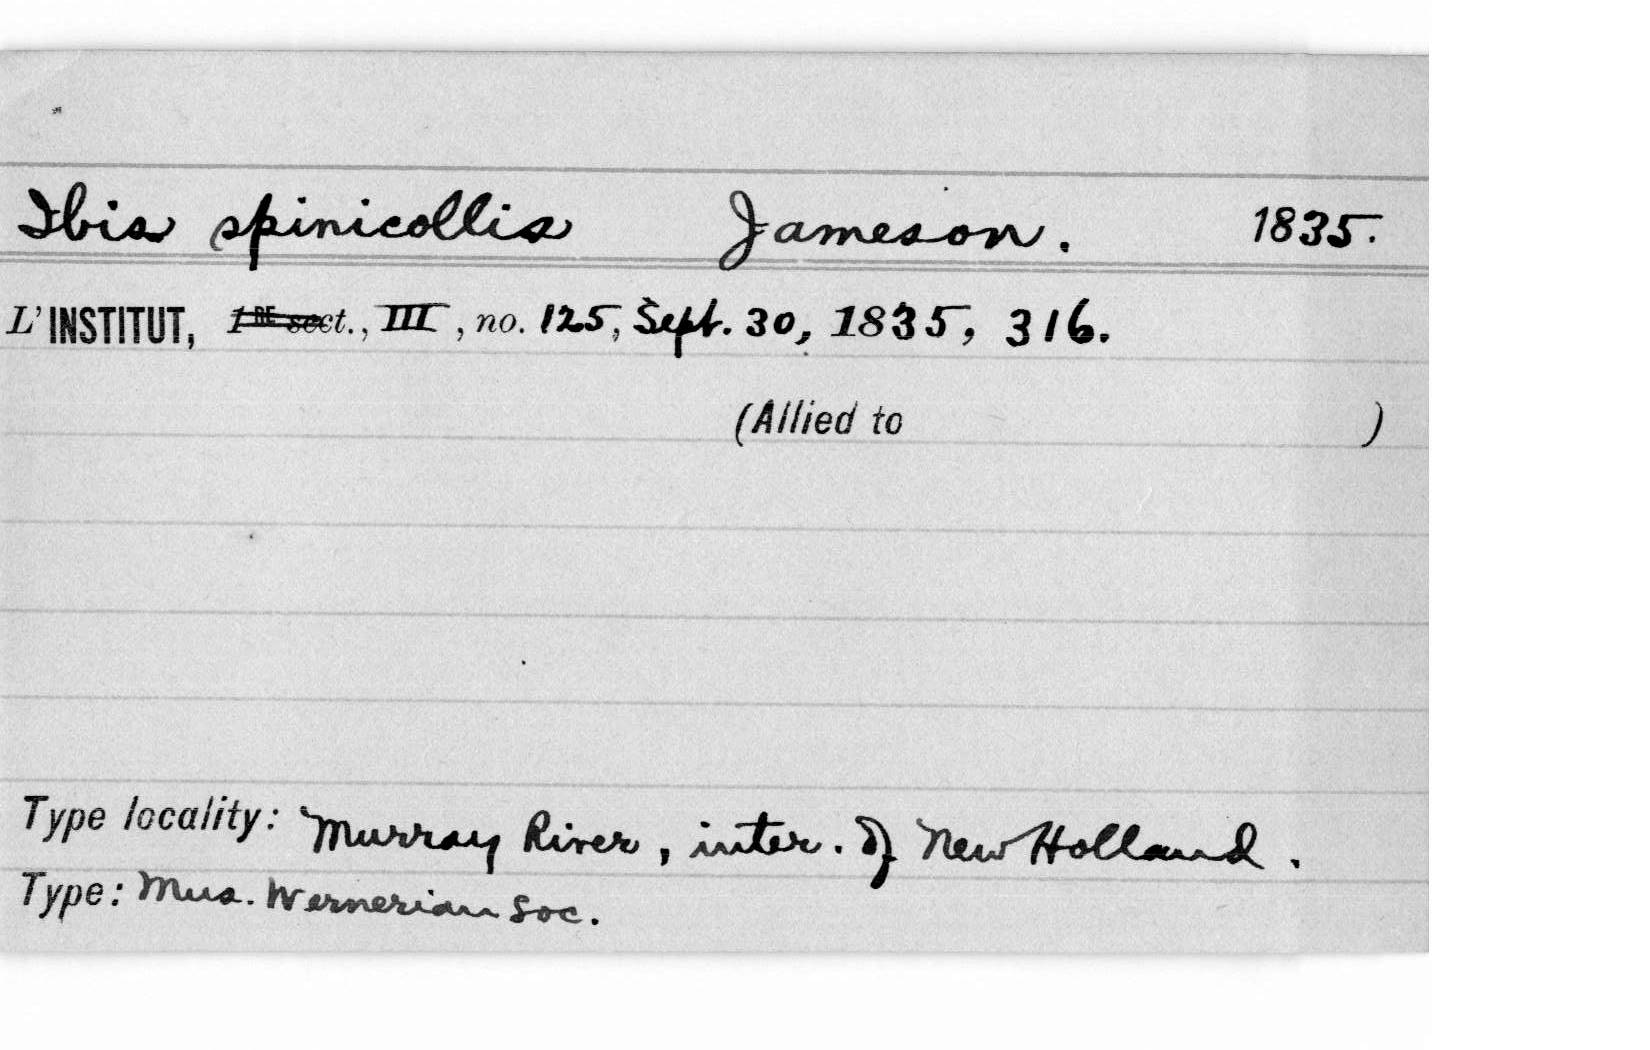 Ibis spinicollis Jameson. 1835.
L'INSTITUT, 1RE sect., III, no. 125, Sept. 30, 1835, 316.
(Allied to )
Type locality: Murray River, inter. of New Holland.
Type: Mus. Wernerian Soc.